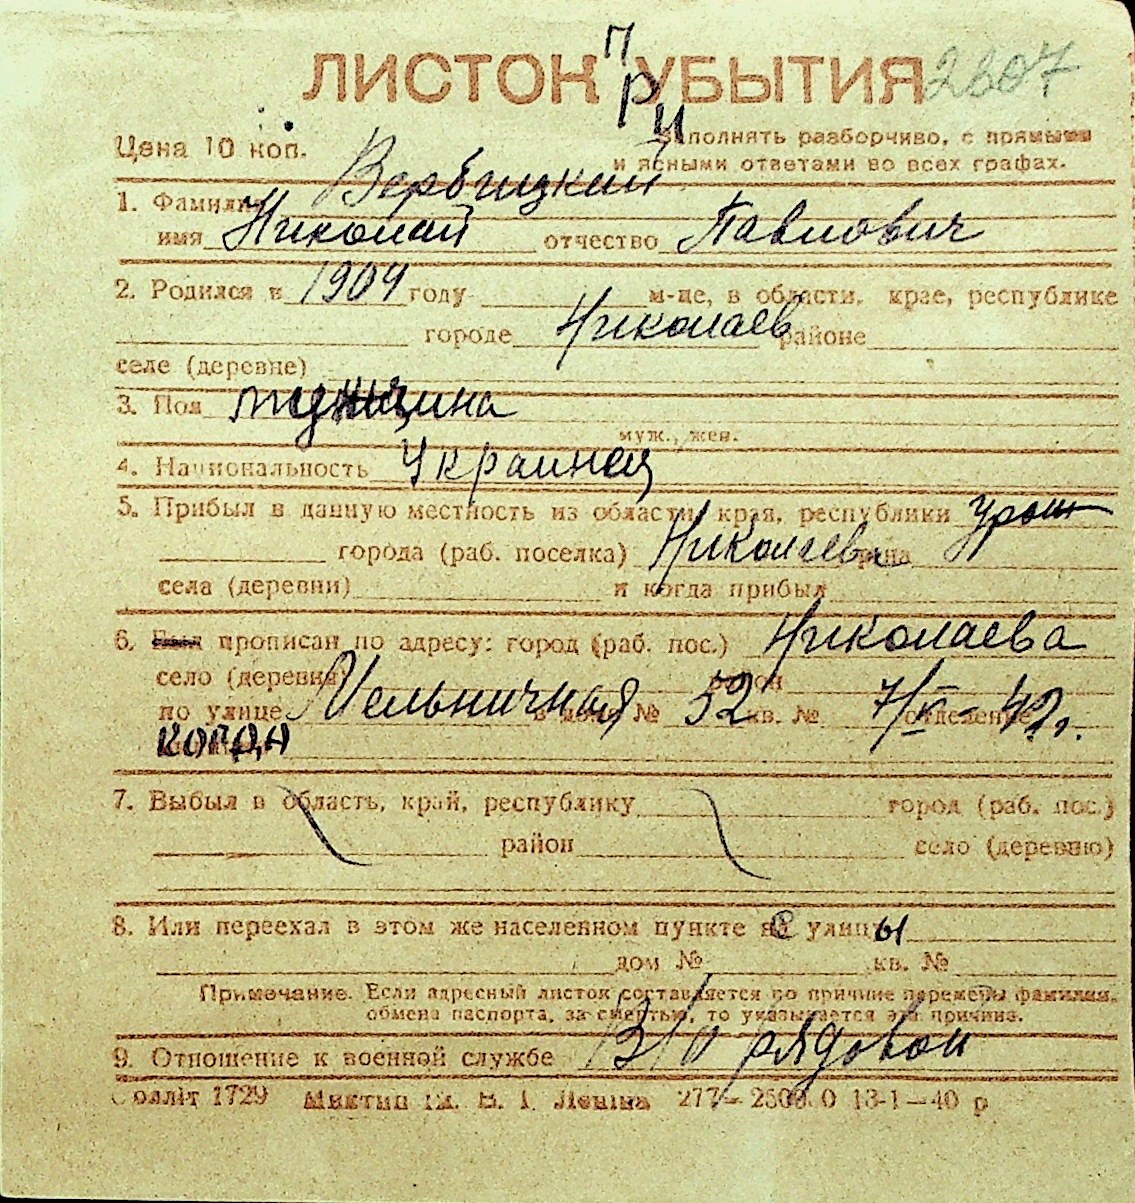 ЛИСТОК ПРИУБЫТИЯ 2607
Цена 10 коп. Заполнять разборчиво, с прямыми
и ясными ответами во всех графах.
1. Фамилия Вербицкий
имя Николай отчество Павлович
2. Родился в 1904 году м-це, в области, крае, республике
городе Николаев районе
селе (деревне)
3. Пол мужчина
муж., жен.
4. Национальность Украинец
5. Прибыл в данную местность из области, края, республики урож
города (раб. поселка) Николаева
села (деревни) и когда прибыл
6. Был прописан по адресу: город (раб. пос.) Николаева
село (деревня) район
по улице Мельничная в доме № 52 кв. № отделение
КОГДА
7. Выбыл в область, край, республику город (раб. пос.)
район село (деревню)
8. Или переехал в этом же населенном пункте с улицы
дом № кв. №
Примечание. Если адресный листок составляется по причине перемены фамилии,
обмена паспорта, за смертью, то указывается эта причина.
9. Отношение к военной службе В/О рядовой
Обліт 1729 ім. В. І. Леніна 277— 13-1—40 р